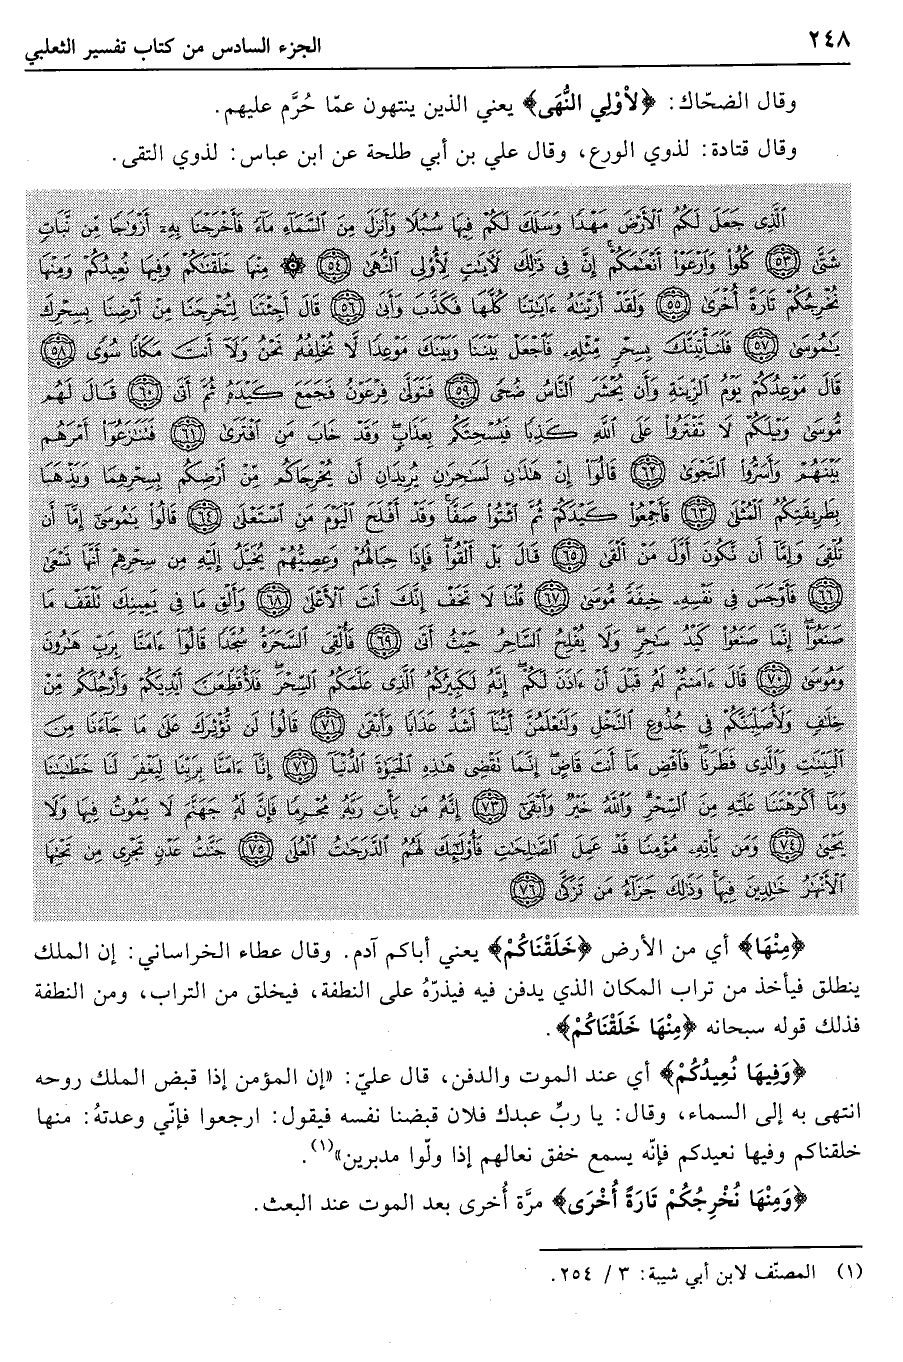 ٢٤٨
الجزء السادس من كتاب تفسير الثعلبي
وقال الضحّاك: ﴿لأوْلِي النُّهَى﴾ يعني الذين ينتهون عمّا حُرَّم عليهم.
وقال قتادة: لذوي الورع، وقال علي بن أبي طلحة عن ابن عباس: لذوي التقى.
الَّذِى جَعَلَ لَكُمُ الْأَرْضَ مَهْدًا وَسَلَكَ لَكُمْ فِيهَا سُبُلًا وَأَنزَلَ مِنَ السَّمَآءِ مَآءً فَأَخْرَجْنَا بِهِۦٓ أَزْوَٰجًا مِّن نَّبَاتٍ
شَتَّىٰ ﴿٥٣﴾ كُلُوا۟ وَٱرْعَوْا۟ أَنْعَـٰمَكُمْ ۗ إِنَّ فِى ذَٰلِكَ لَـَٔايَـٰتٍ لِّأُو۟لِى النُّهَىٰ ﴿٥٤﴾ ۞ مِنْهَا خَلَقْنَـٰكُمْ وَفِيهَا نُعِيدُكُمْ وَمِنْهَا
نُخْرِجُكُمْ تَارَةً أُخْرَىٰ ﴿٥٥﴾ وَلَقَدْ أَرَيْنَـٰهُ ءَايَـٰتِنَا كُلَّهَا فَكَذَّبَ وَأَبَىٰ ﴿٥٦﴾ قَالَ أَجِئْتَنَا لِتُخْرِجَنَا مِنْ أَرْضِنَا بِسِحْرِكَ
يَـٰمُوسَىٰ ﴿٥٧﴾ فَلَنَأْتِيَنَّكَ بِسِحْرٍ مِّثْلِهِۦ فَٱجْعَلْ بَيْنَنَا وَبَيْنَكَ مَوْعِدًا لَّا نُخْلِفُهُۥ نَحْنُ وَلَآ أَنتَ مَكَانًا سُوًى ﴿٥٨﴾
قَالَ مَوْعِدُكُمْ يَوْمُ الزِّينَةِ وَأَن يُحْشَرَ النَّاسُ ضُحًى ﴿٥٩﴾ فَتَوَلَّىٰ فِرْعَوْنُ فَجَمَعَ كَيْدَهُۥ ثُمَّ أَتَىٰ ﴿٦٠﴾ قَالَ لَهُم
مُّوسَىٰ وَيْلَكُمْ لَا تَفْتَرُوا۟ عَلَى اللَّهِ كَذِبًا فَيُسْحِتَكُم بِعَذَابٍ ۖ وَقَدْ خَابَ مَنِ افْتَرَىٰ ﴿٦١﴾ فَتَنَـٰزَعُوٓا۟ أَمْرَهُم
بَيْنَهُمْ وَأَسَرُّوا۟ النَّجْوَىٰ ﴿٦٢﴾ قَالُوٓا۟ إِنْ هَـٰذَٰنِ لَسَـٰحِرَٰنِ يُرِيدَانِ أَن يُخْرِجَاكُم مِّنْ أَرْضِكُم بِسِحْرِهِمَا وَيَذْهَبَا
بِطَرِيقَتِكُمُ الْمُثْلَىٰ ﴿٦٣﴾ فَأَجْمِعُوا۟ كَيْدَكُمْ ثُمَّ ائْتُوا۟ صَفًّا ۚ وَقَدْ أَفْلَحَ الْيَوْمَ مَنِ اسْتَعْلَىٰ ﴿٦٤﴾ قَالُوا۟ يَـٰمُوسَىٰٓ إِمَّآ أَن
تُلْقِىَ وَإِمَّآ أَن نَّكُونَ أَوَّلَ مَنْ أَلْقَىٰ ﴿٦٥﴾ قَالَ بَلْ أَلْقُوا۟ ۖ فَإِذَا حِبَالُهُمْ وَعِصِيُّهُمْ يُخَيَّلُ إِلَيْهِ مِن سِحْرِهِمْ أَنَّهَا تَسْعَىٰ
﴿٦٦﴾ فَأَوْجَسَ فِى نَفْسِهِۦ خِيفَةً مُّوسَىٰ ﴿٦٧﴾ قُلْنَا لَا تَخَفْ إِنَّكَ أَنتَ الْأَعْلَىٰ ﴿٦٨﴾ وَأَلْقِ مَا فِى يَمِينِكَ تَلْقَفْ مَا
صَنَعُوٓا۟ ۖ إِنَّمَا صَنَعُوا۟ كَيْدُ سَـٰحِرٍ ۖ وَلَا يُفْلِحُ السَّاحِرُ حَيْثُ أَتَىٰ ﴿٦٩﴾ فَأُلْقِىَ السَّحَرَةُ سُجَّدًا قَالُوٓا۟ ءَامَنَّا بِرَبِّ هَـٰرُونَ
وَمُوسَىٰ ﴿٧٠﴾ قَالَ ءَامَنتُمْ لَهُۥ قَبْلَ أَنْ ءَاذَنَ لَكُمْ ۖ إِنَّهُۥ لَكَبِيرُكُمُ الَّذِى عَلَّمَكُمُ السِّحْرَ ۖ فَلَأُقَطِّعَنَّ أَيْدِيَكُمْ وَأَرْجُلَكُم مِّنْ
خِلَـٰفٍ وَلَأُصَلِّبَنَّكُمْ فِى جُذُوعِ النَّخْلِ وَلَتَعْلَمُنَّ أَيُّنَآ أَشَدُّ عَذَابًا وَأَبْقَىٰ ﴿٧١﴾ قَالُوا۟ لَن نُّؤْثِرَكَ عَلَىٰ مَا جَآءَنَا مِنَ
الْبَيِّنَـٰتِ وَالَّذِى فَطَرَنَا ۖ فَاقْضِ مَآ أَنتَ قَاضٍ ۖ إِنَّمَا تَقْضِى هَـٰذِهِ الْحَيَوٰةَ الدُّنْيَآ ﴿٧٢﴾ إِنَّآ ءَامَنَّا بِرَبِّنَا لِيَغْفِرَ لَنَا خَطَـٰيَـٰنَا
وَمَآ أَكْرَهْتَنَا عَلَيْهِ مِنَ السِّحْرِ ۗ وَاللَّهُ خَيْرٌ وَأَبْقَىٰٓ ﴿٧٣﴾ إِنَّهُۥ مَن يَأْتِ رَبَّهُۥ مُجْرِمًا فَإِنَّ لَهُۥ جَهَنَّمَ لَا يَمُوتُ فِيهَا وَلَا
يَحْيَىٰ ﴿٧٤﴾ وَمَن يَأْتِهِۦ مُؤْمِنًا قَدْ عَمِلَ الصَّـٰلِحَـٰتِ فَأُو۟لَـٰٓئِكَ لَهُمُ الدَّرَجَـٰتُ الْعُلَىٰ ﴿٧٥﴾ جَنَّـٰتُ عَدْنٍ تَجْرِى مِن تَحْتِهَا
الْأَنْهَـٰرُ خَـٰلِدِينَ فِيهَا ۚ وَذَٰلِكَ جَزَآءُ مَن تَزَكَّىٰ ﴿٧٦﴾
﴿مِنْهَا﴾ أي من الأرض ﴿خَلَقْنَاكُمْ﴾ يعني أباكم آدم. وقال عطاء الخراساني: إن الملك
ينطلق فيأخذ من تراب المكان الذي يدفن فيه فيذرّهُ على النطفة، فيخلق من التراب، ومن النطفة
فذلك قوله سبحانه ﴿مِنْهَا خَلَقْنَاكُمْ﴾.
﴿وَفِيهَا نُعِيدُكُمْ﴾ أي عند الموت والدفن، قال عليّ: «إن المؤمن إذا قبض الملك روحه
انتهى به إلى السماء، وقال: يا ربِّ عبدك فلان قبضنا نفسه فيقول: ارجعوا فإنّي وعدتهُ: منها
خلقناكم وفيها نعيدكم فإنّه يسمع خفق نعالهم إذا ولّوا مدبرين»(١).
﴿وَمِنْهَا نُخْرِجُكُمْ تَارَةً أُخْرَى﴾ مرَّة أُخرى بعد الموت عند البعث.
(١) المصنّف لابن أبي شيبة: ٣ / ٢٥٤.